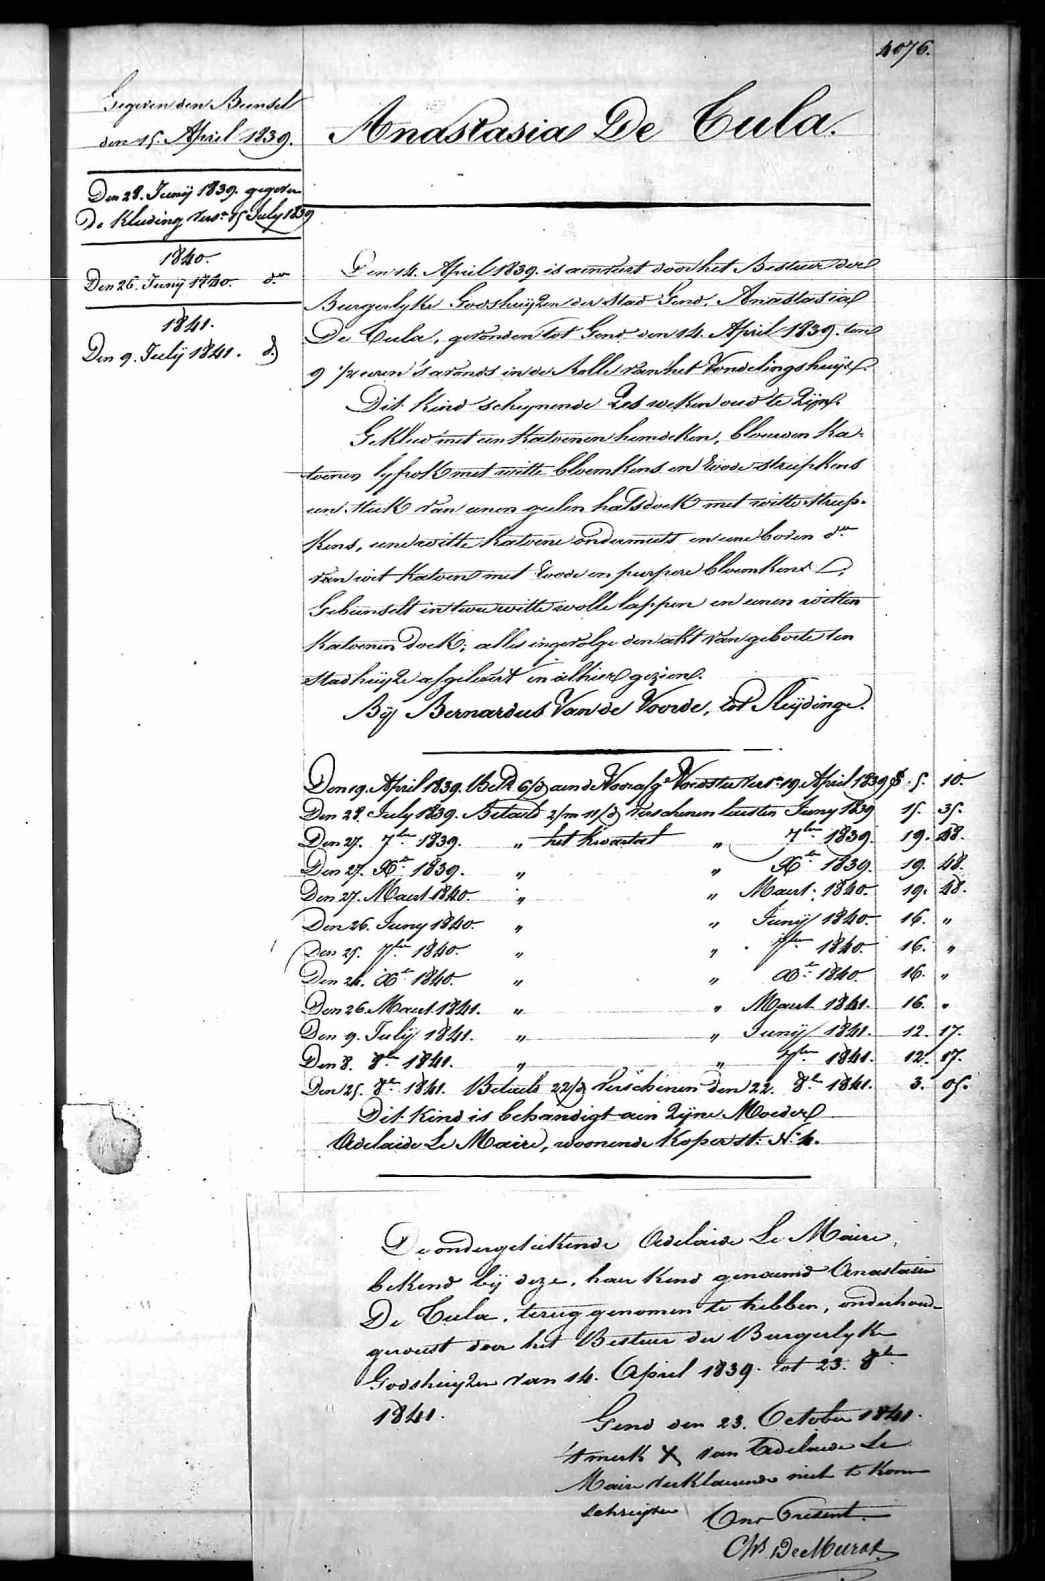 4076.
Gegeven den Bunsel
den 15. April 1839.
Den 28. Junij 1839. gegeven
De Kleeding vers. 15 July 1839
1840.
Den 26. Junij 1840. do
1841.
Den 9. Julij 1841. d.
Anastasia De Cula.
Den 14. April 1839. is aenveert door het Bestuer der
Burgerlyke Godshuijzen der Stad Gend, Anastasia
De Cula, gevonden tot Gend den 14. April 1839. ten
9 1/2 uren 's avonds in de Rolle van het Vondelingshuijs.
Dit Kind schynende Zes weken oud te Zijn.
Gekleed met een Katoenen hemdeken, blauwen Ka-
toenen lyfrok met witte bloemkens en roode streepkens
een stuk van eenen geelen halsdoek met witte streep-
kens, eene witte Katoene ondermuts en eene boven do
van wit Katoen met roode en purpere bloemkens.
Gebunselt in twee witte wolle lappen en eenen witten
Katoenen doek; alles ingevolge den akt van geboorte ten
Stadhuijze afgelevert en alhier gezien.
Bij Bernardus Van de Voorde, tot Sleijdinge.
Den 19. April 1839. Bet. 6/d aen de Voedster vers. 19. April 1839 5. 10.
Den 28. July 1839. Betaeld 2/m 11/d verschenen laesten Juny 1839 15. 35.
Den 27. 7ber 1839. " het kwartael " 7ber 1839. 19. 48.
Den 27. Xber 1839. " " Xber 1839. 19. 48.
Den 27. Maert 1840. " " Maert 1840. 19. 48.
Den 26. Juny 1840. " " Junij 1840. 16. "
Den 25. 7ber 1840. " " 7ber 1840. 16. "
Den 24. Xber 1840. " " Xber 1840. 16. "
Den 26. Maert 1841. " " Maert 1841. 16. "
Den 9. Julij 1841. " " Junij 1841. 12. 17.
Den 8. 8ber 1841. " " 7ber 1841. 12. 17.
Den 25. 8ber 1841. Betaeld 22/d verschenen den 22. 8ber 1841. 3. 05.
Dit Kind is behandigt aen Zijne Moeder
Adelaide Le Maire, woonende Koperst. No 4.
De ondergeteekende Adelaide Le Maire,
bekend bij deze, haer Kind genaemd Anastasia
De Cula, terug genomen te hebben, onderhoud-
geweest door het Bestuer der Burgerlyke
Godshuijzen van 14. April 1839. tot 23. 8ber
1841.
Gend den 23. October 1841.
't merk X van Adelaide Le
Maire verklaerende niet te konnen
schrijven
Ons Present.
Chs DeMeeras